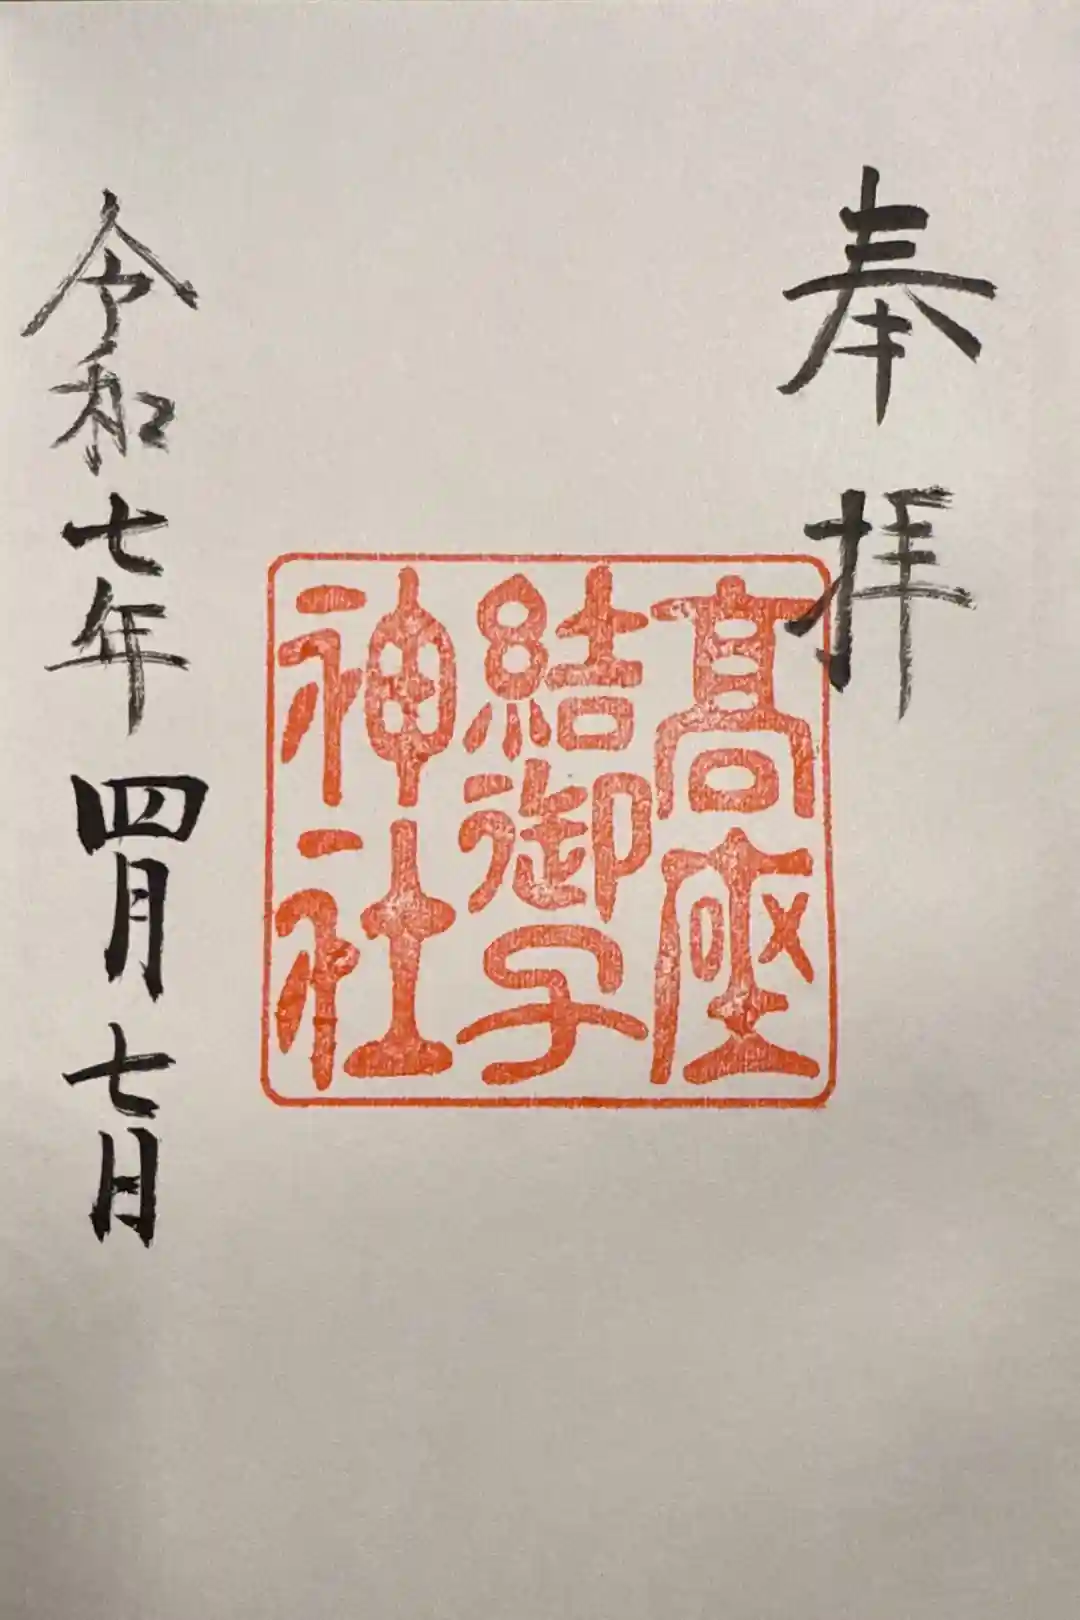 奉拝
髙座
結御子
神社
令和七年四月七日